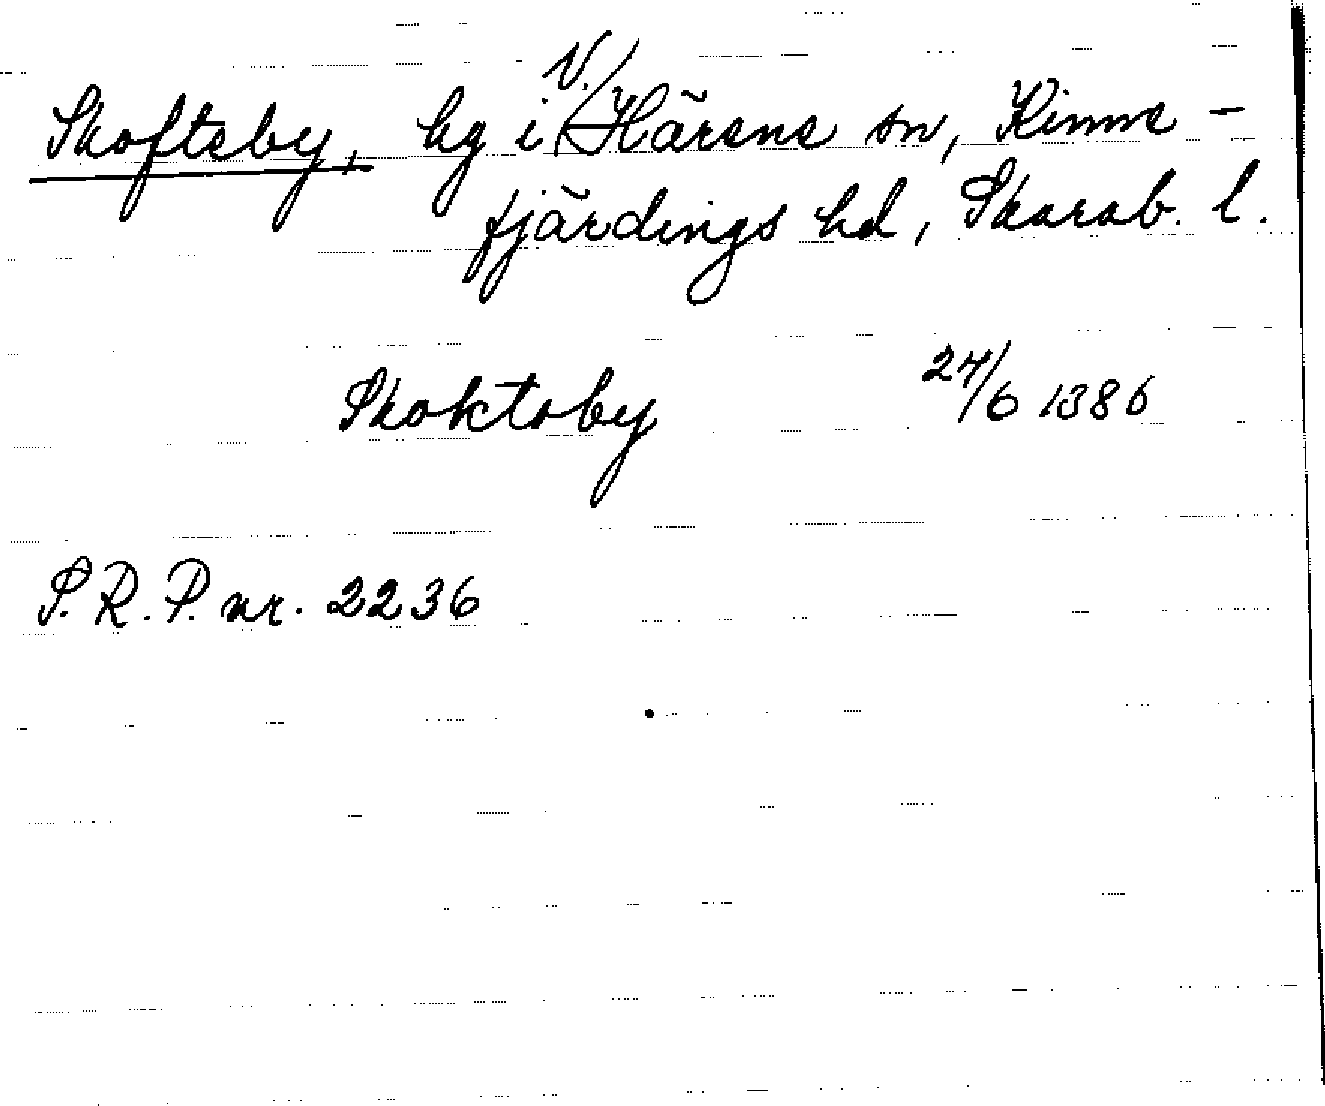 Skofteby, hg i V. Härene sn, Kinne-
fjärdings hd, Skarab. l.
Skoktoby 24/6 1386
S.R.P. nr. 2236